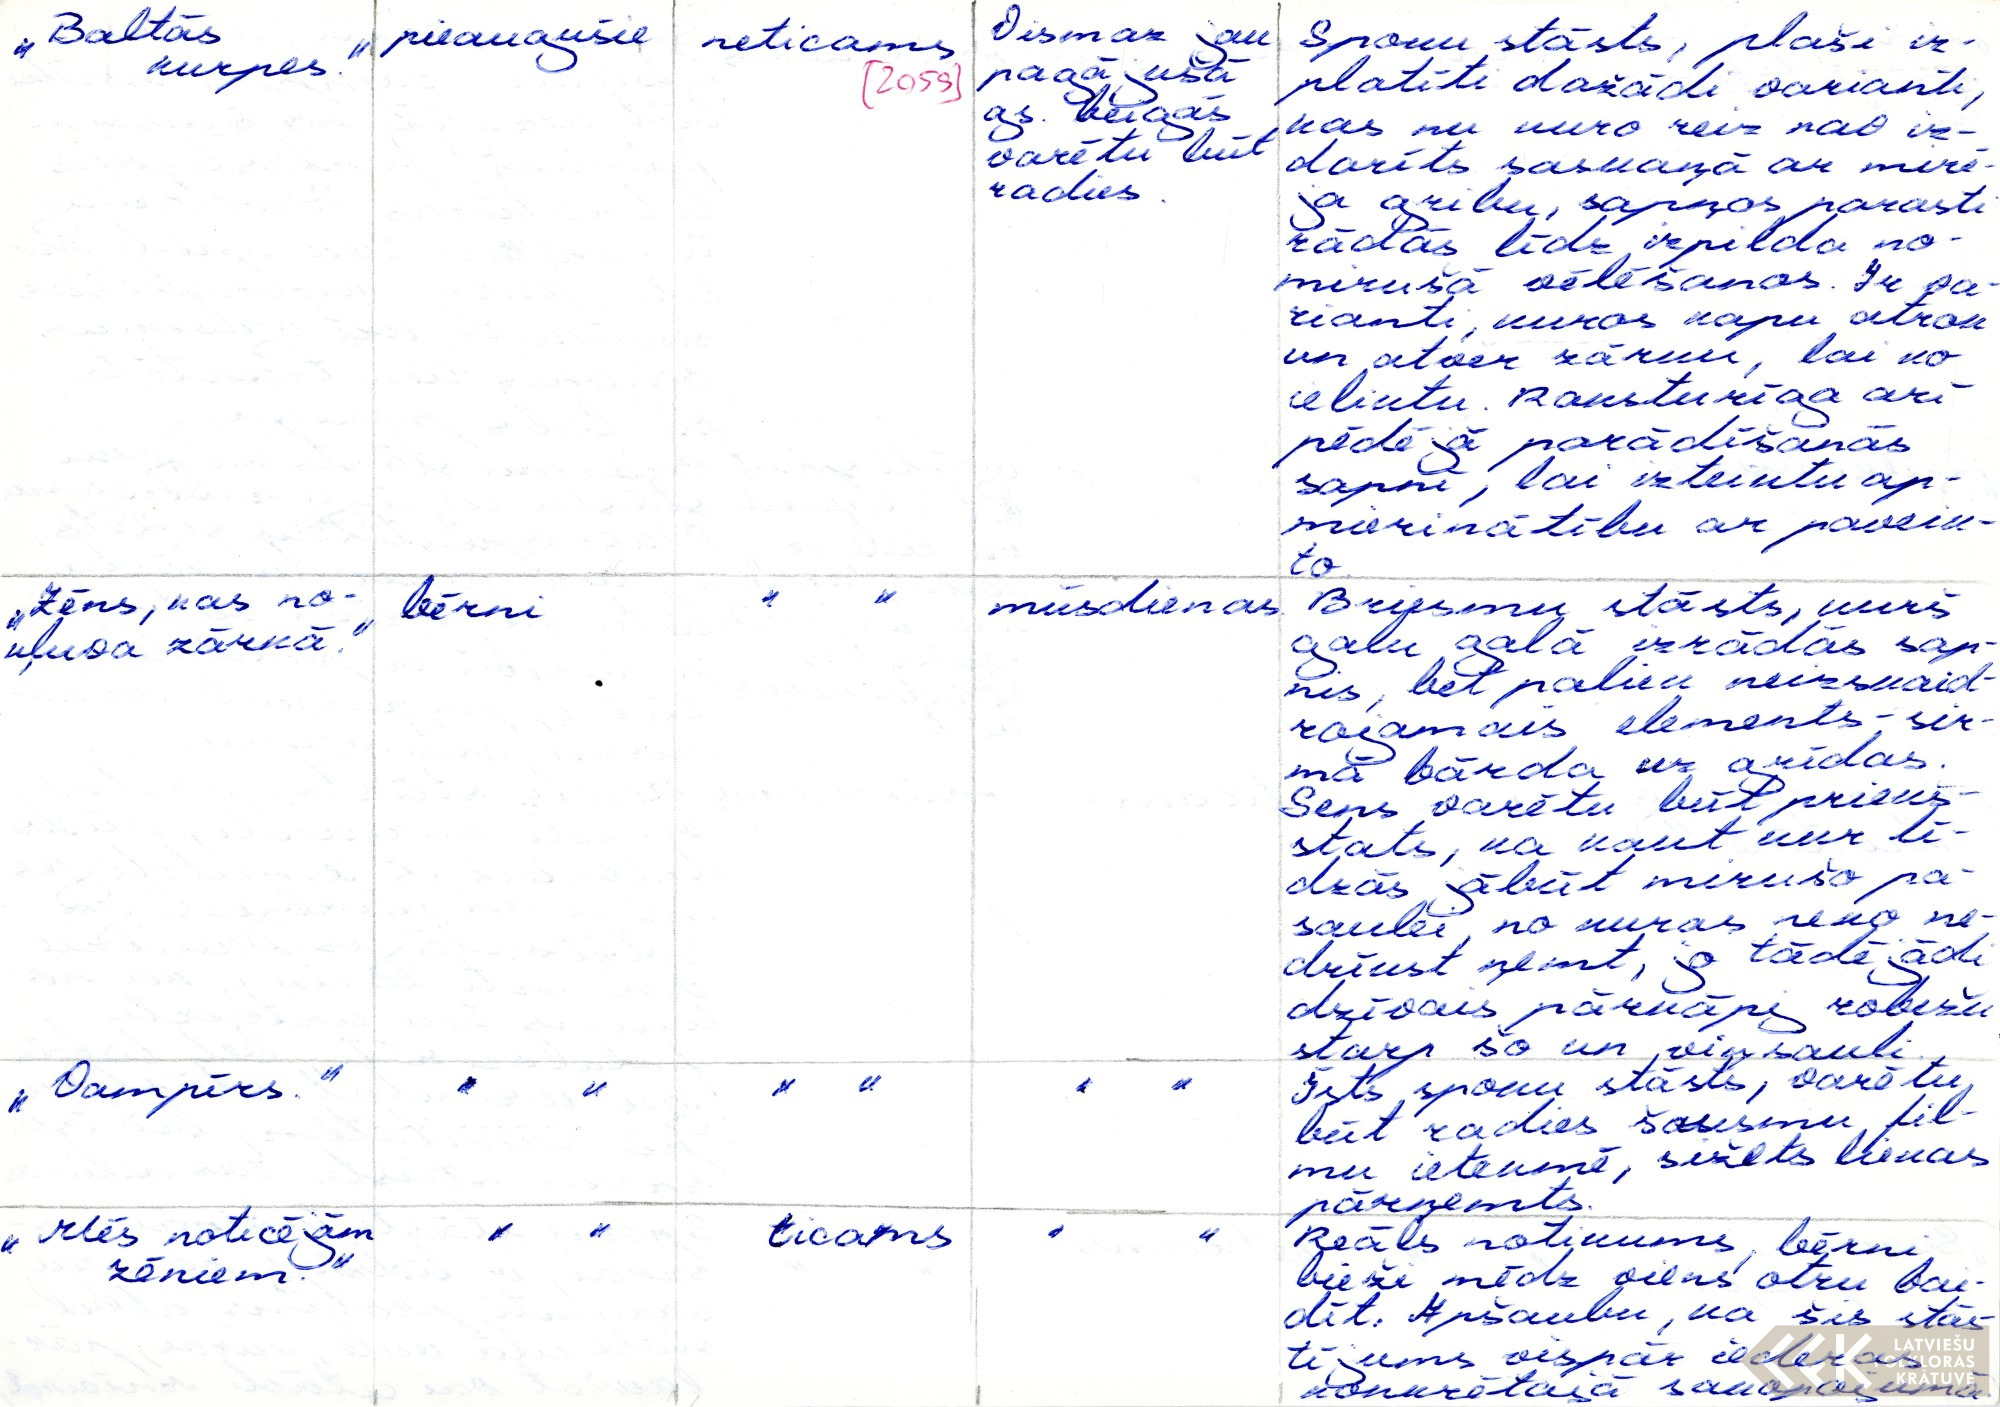 „Baltās
kurpes."
pieaugušie
neticams
[2059]
Vismaz jau
pagājušā
gs. beigās
varētu būt
radies.
Spoku stāsts, plaši iz-
platīti dažādi varianti,
kas nu kuro reiz nav iz-
darīts saskaņā ar mirē-
ja gribu, sapņos parasti
rādās līdz izpilda no-
mirušā vēlēšanos. Ir va-
rianti, kuros kapu atrok
un atver zārku, lai ko
ieliktu. Raksturīga arī
pēdējā parādīšanās
sapnī, lai izteiktu ap-
mierinātību ar paveik-
to.
„Zēns, kas no-
kļuva zārkā."
bērni
" "
mūsdienas
Briesmu stāsts, kurš
galu galā izrādās sap-
nis, bet paliek neizskaid-
rojamais elements - sir-
mā bārda uz grīdas.
Sens varētu būt priekš-
stats, ka kaut kur lī-
dzās jābūt mirušo pa-
saulei, no kuras neko ne-
drīkst ņemt, jo tādējādi
dzīvais pārkāpj robežu
starp šo un viņsauli.
„Vampīrs."
" "
" "
" "
Īsts spoku stāsts, varētu
būt radies šausmu fil-
mu ietekmē, sižets liekas
pārņemts.
„Mēs noticējām
zēniem."
" "
ticams
" "
Reāls notikums, bērni
bieži mēdz viens otru bai-
dīt. Apšaubu, ka šis stās-
tījums vispār iederas
konkrētajā sakopojumā.
LATVIEŠU
FOLKLORAS
KRĀTUVE